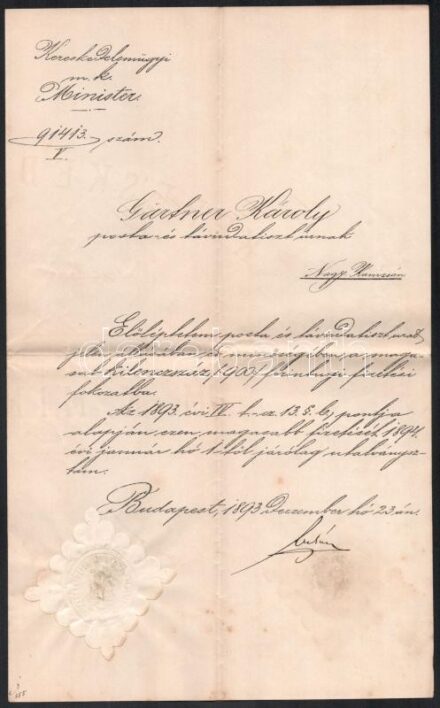 Kereskedelemügyi
m. k.
Minister.
91413. szám.
V.
Gärtner Károly
posta- és távirdatiszt úrnak
Nagy Kanizsán
Előléptetem posta és távirdatiszt urat
jelen állásában és
kilenczszáz /900/ frtnyi fizetési
fokozatba.
Az 1893. évi IV. t.-cz. 13. § b, pontja
alapján ezen magasabb fizetését 1894.
évi január hó 1-től járólag utalványoz-
tam.
Budapest, 1893 December hó 23-án.